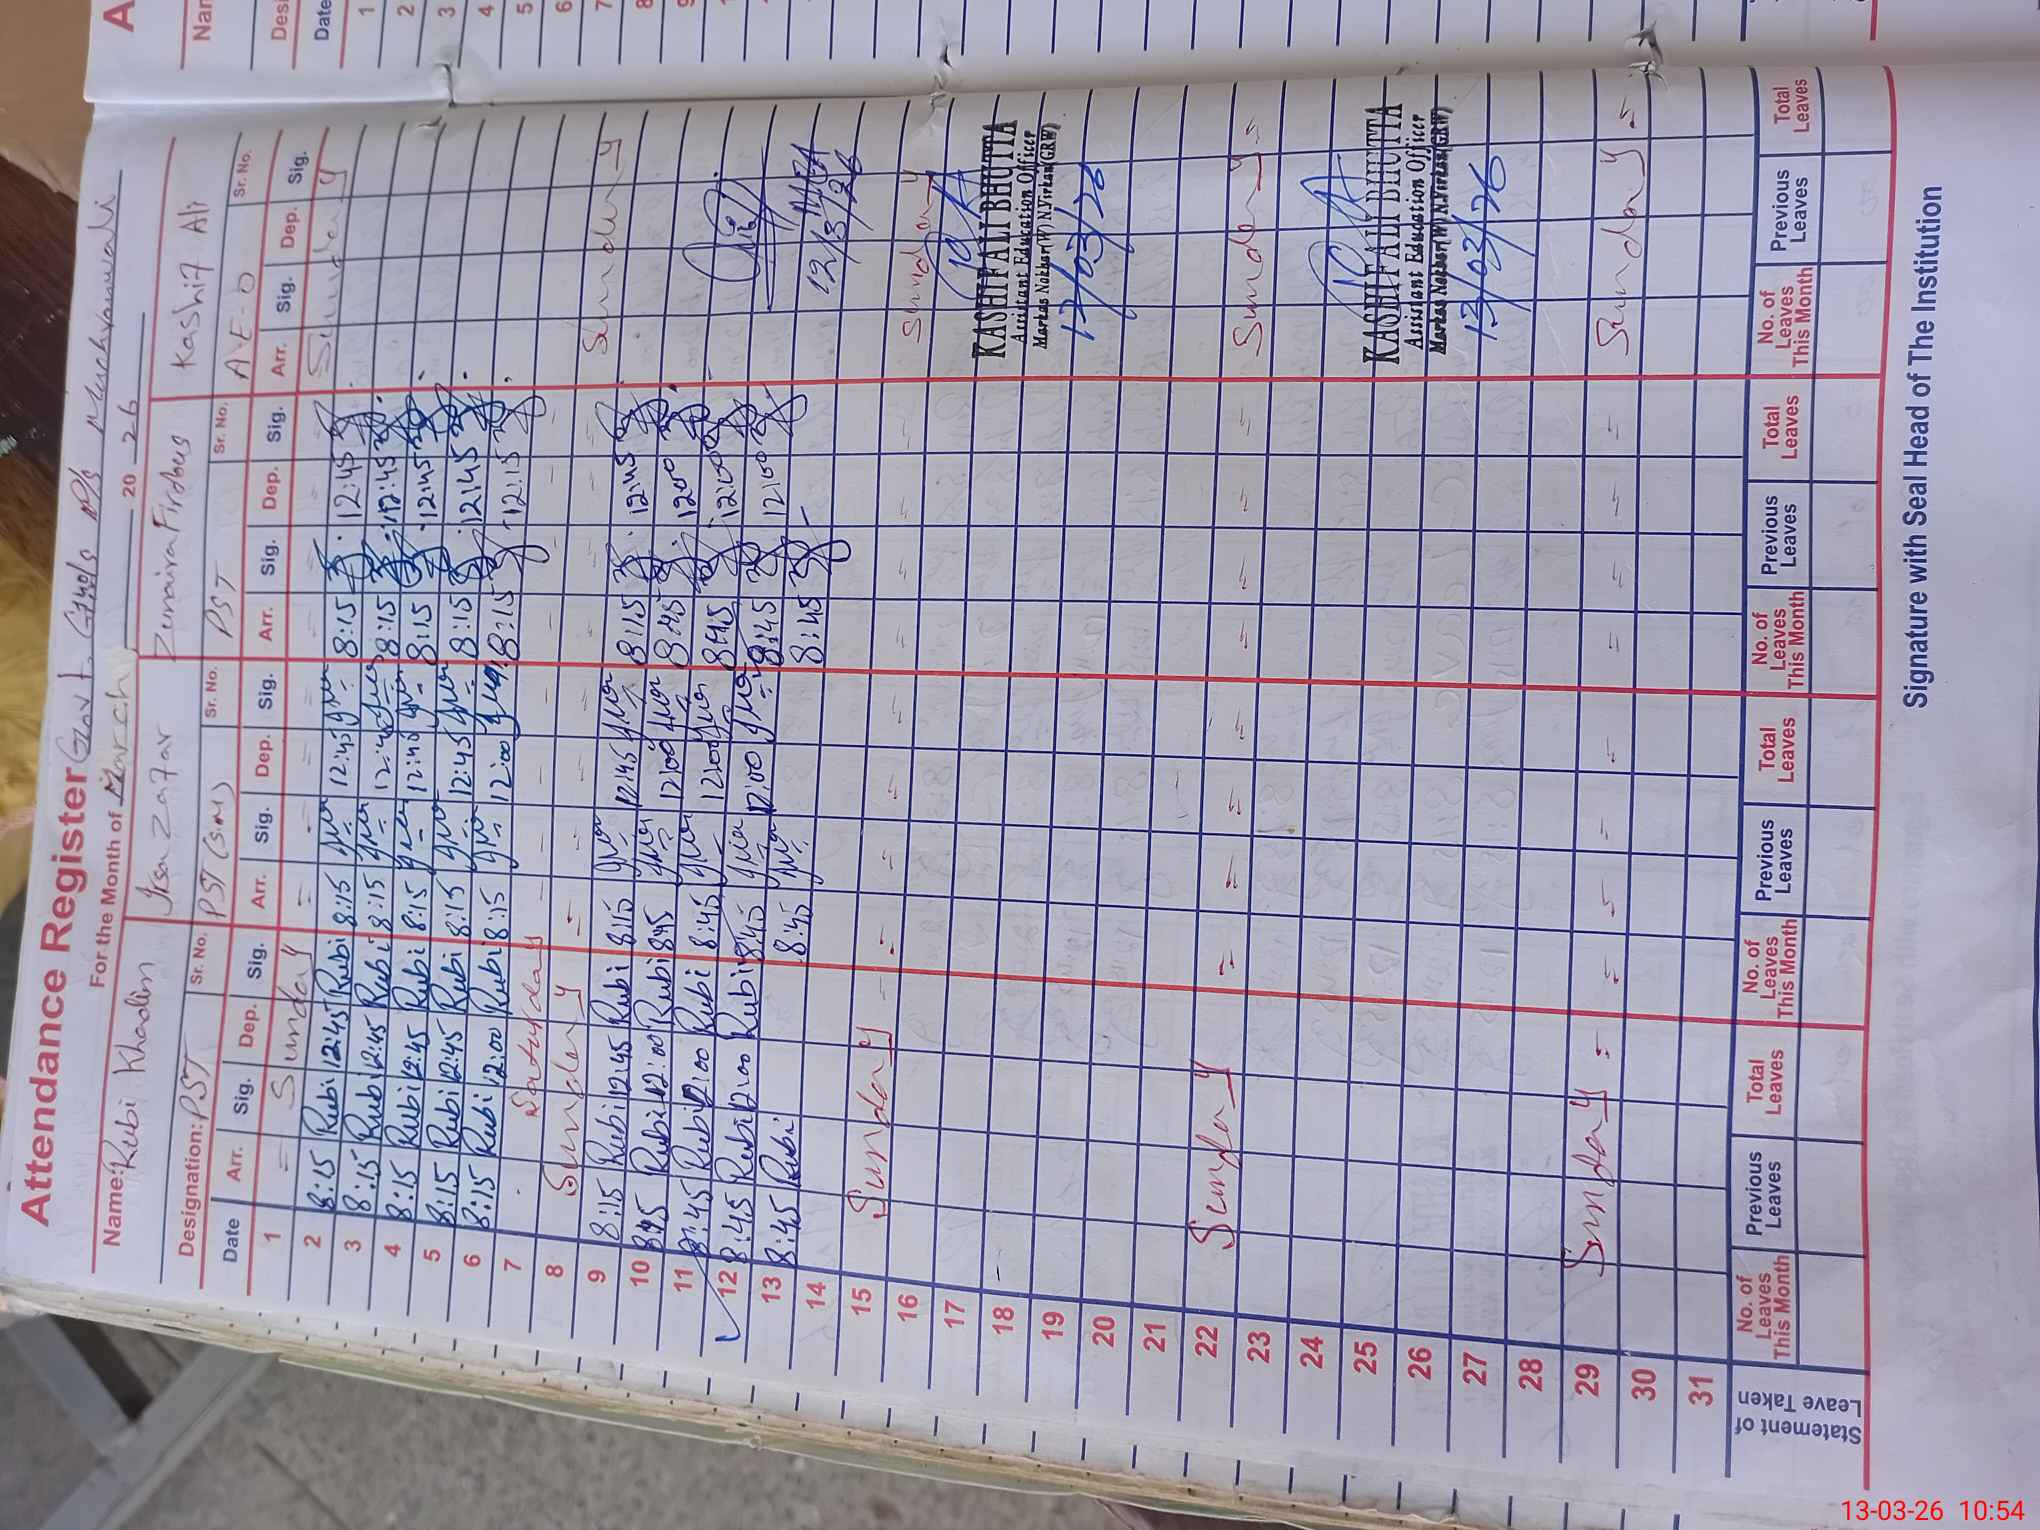 Attendance Register Govt. G Muchranwali
For the Month of March 2026
Name: Rubi Khadim Iksa Zafar Zumaira Firdous Kashif Ali
Designation: PST Sr. No. PST (S.M) Sr. No. PST Sr. No. A-E-O Sr. No.
Date Arr. Sig. Dep. Sig. Arr. Sig. Dep. Sig. Arr. Sig. Dep. Sig. Arr. Sig. Dep. Sig.
1 = Sunday = = = Sunday
2 8:15 Rubi 12:45 Rubi 8:15 12:45 8:15 12:45
3 8:15 Rubi 12:45 Rubi 8:15 12:45 8:15 12:45
4 8:15 Rubi 12:45 Rubi 8:15 12:45 8:15 12:45
5 8:15 Rubi 12:45 Rubi 8:15 12:45 8:15 12:45
6 8:15 Rubi 12:00 Rubi 8:15 12:00 8:15 12:15
7 Saturday
8 Sunday = = Sunday
9 8:15 Rubi 12:45 Rubi 8:15 12:45 8:15 12:45
10 8:45 Rubi 12:00 Rubi 8:45 12:00 8:45 12:00
11 8:45 Rubi 12:00 Rubi 8:45 12:00 8:45 12:00
12 8:45 Rubi 12:00 Rubi 8:45 12:00 8:45 12:00
13 8:45 Rubi 8:45 8:45
14 12/3/26
15 Sunday = = = = = = = Sunday
16
17
18 KASHIF ALI BHUTTA
Assistant Education Officer
19 Markaz Nokhar(W) N.Virkan(GRW)
20 13/03/26
21
22 Sunday = = = = = = = Sunday =
23
24
25 KASHIF ALI BHUTTA
26 Assistant Education Officer
Markaz Nokhar(W) N.Virkan(GRW)
27 13/03/26
28
29 Sunday = = = = = = = = Sunday =
30
31
Statement of Leave Taken
No. of Leaves This Month Previous Leaves Total Leaves No. of Leaves This Month Previous Leaves Total Leaves No. of Leaves This Month Previous Leaves Total Leaves No. of Leaves This Month Previous Leaves Total Leaves
Signature with Seal Head of The Institution
A
Nar
Desi
Date
1
2
3
4
5
6
7
8
9
13-03-26 10:54